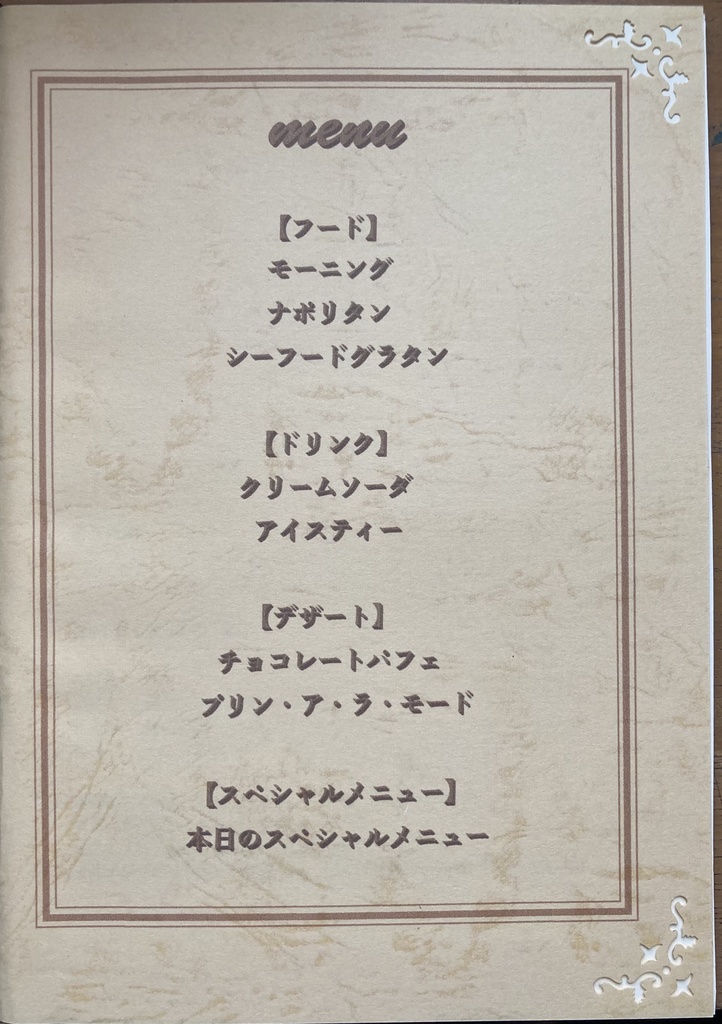 menu
【フード】
モーニング
ナポリタン
シーフードグラタン
【ドリンク】
クリームソーダ
アイスティー
【デザート】
チョコレートパフェ
プリン・ア・ラ・モード
【スペシャルメニュー】
本日のスペシャルメニュー